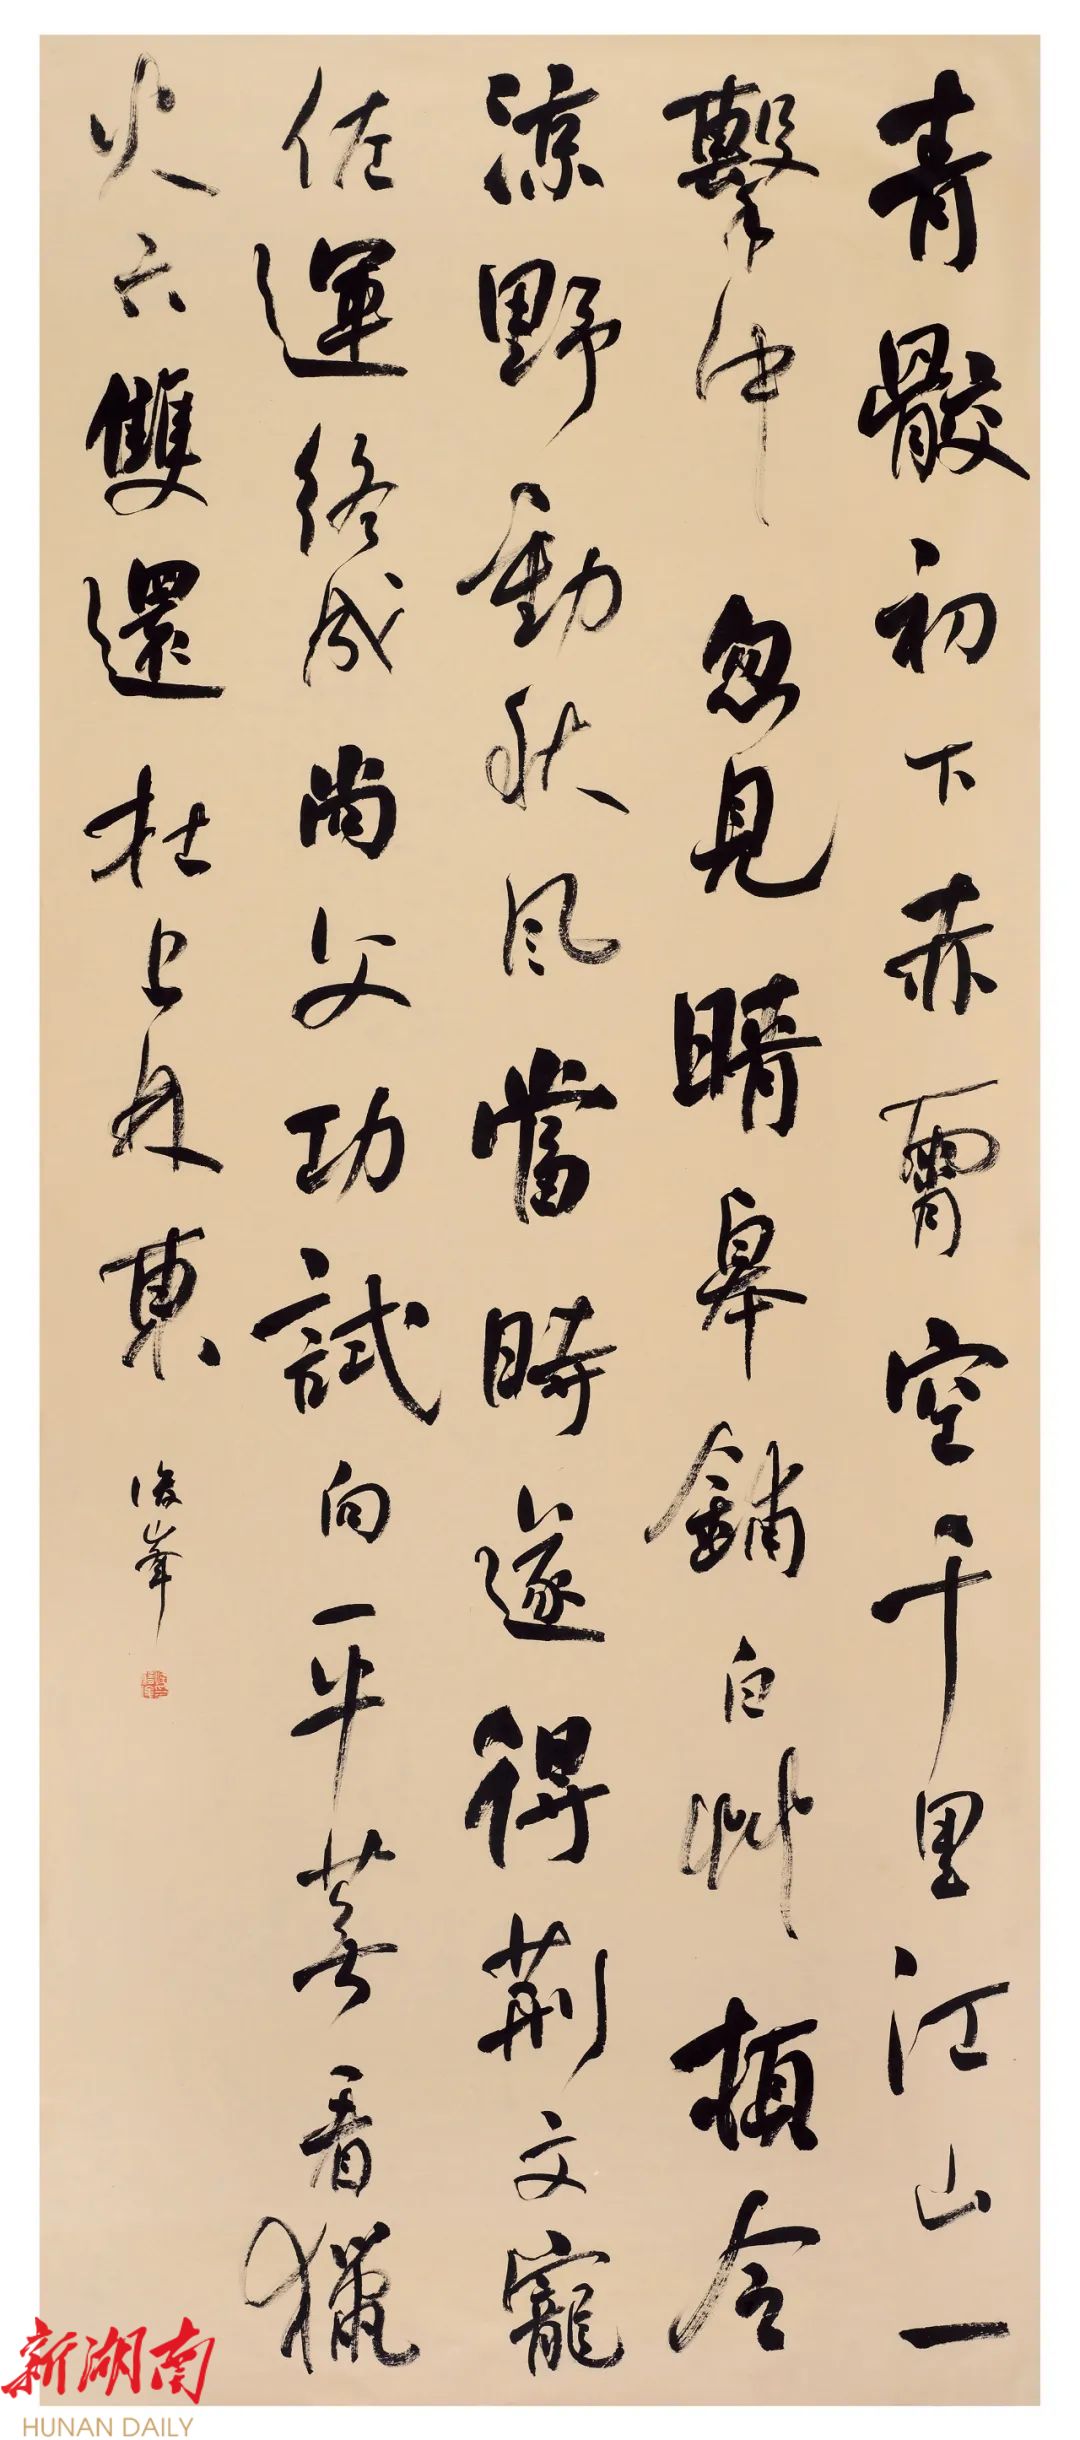 青骹初下赤霄空千里江山一
擊中忽見晴皋鋪白草頓令
涼野動秋風當時遂得荆文寵
佐運終成尚父功試向平蕪看獵
火六雙還在上林東
俊峯
新湖南
HUNAN DAILY